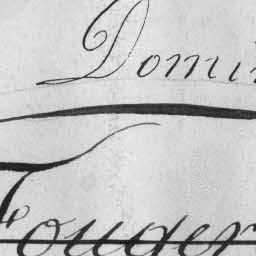 Domi
Fouger